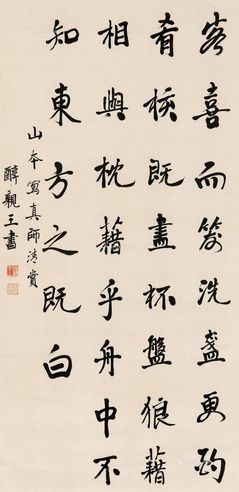 客喜而笑洗盞更酌
肴核既盡杯盤狼藉
相與枕藉乎舟中不
知東方之既白
山本寫真師清賞
醇親王書